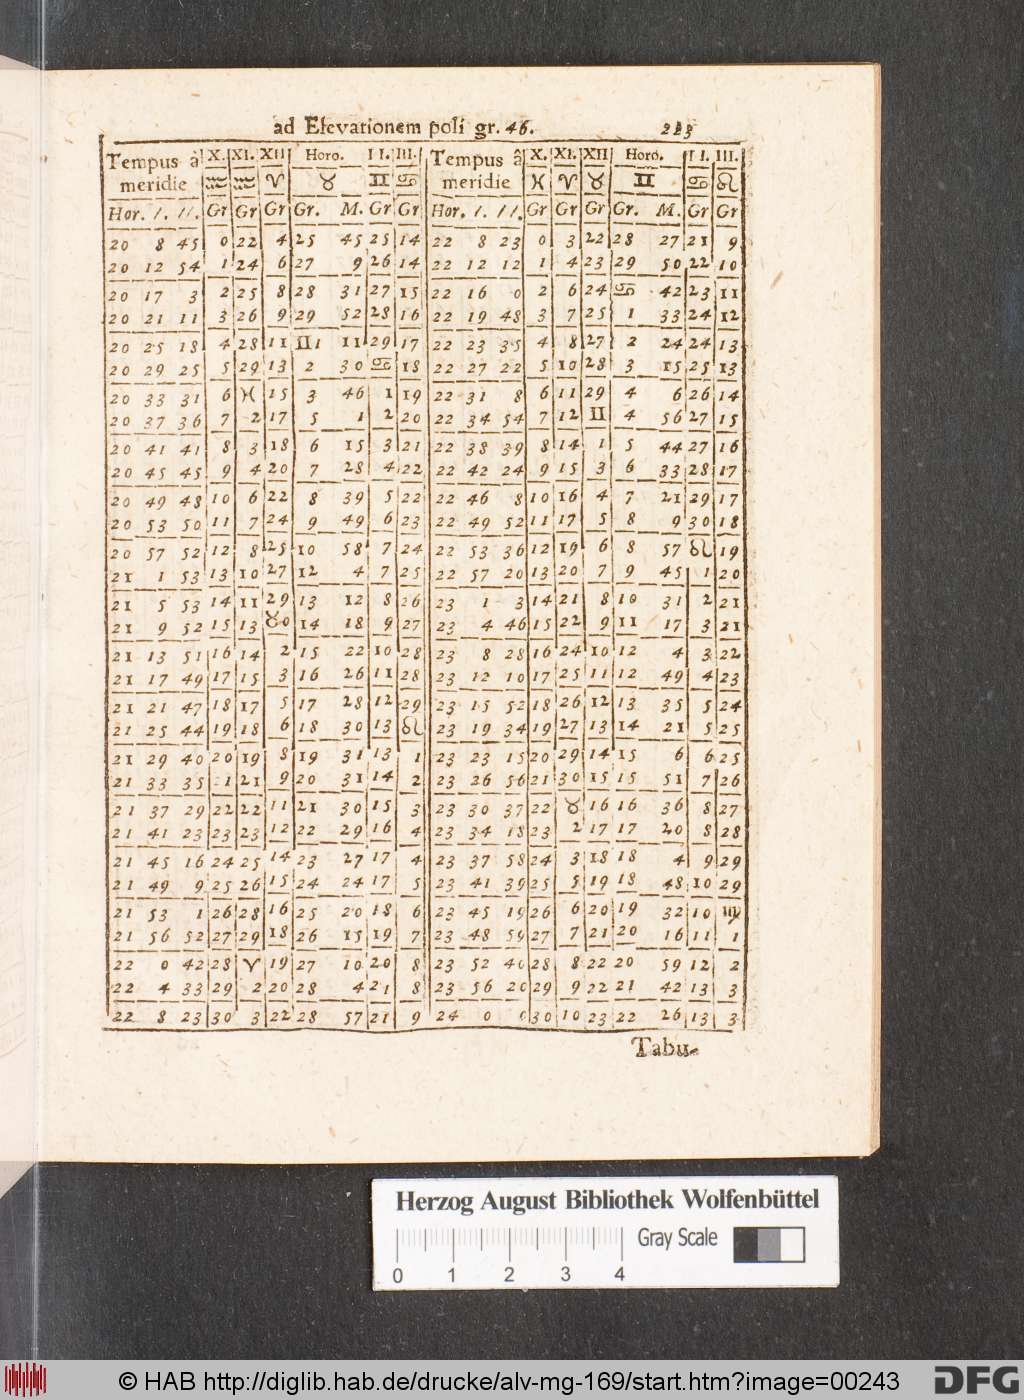 ad Elevationem poli gr. 46. 223
Tempus à meridie X. XI. XII Horo. II. III. Tempus â meridie X. XI. XII Horo. II. III.
♒ ♒ ♈ ♉ ♊ ♋ ♓ ♈ ♉ ♊ ♋ ♌
Hor. I. II. Gr Gr Gr Gr. M. Gr Gr Hor. I. II. Gr Gr Gr Gr. M. Gr Gr
20 8 45 0 22 4 25 45 25 14 22 8 23 0 3 22 28 27 21 9
20 12 54 1 24 6 27 9 26 14 22 12 12 1 4 23 29 50 22 10
20 17 3 2 25 8 28 31 27 15 22 16 0 2 6 24 ♋ 42 23 11
20 21 11 3 26 9 29 52 28 16 22 19 48 3 7 25 1 33 24 12
20 25 18 4 28 11 ♊1 11 29 17 22 23 35 4 8 27 2 24 24 13
20 29 25 5 29 13 2 30 ♋ 18 22 27 22 5 10 28 3 15 25 13
20 33 31 6 ♓ 15 3 46 1 19 22 31 8 6 11 29 4 6 26 14
20 37 36 7 2 17 5 1 2 20 22 34 54 7 12 ♊ 4 56 27 15
20 41 41 8 3 18 6 15 3 21 22 38 39 8 14 1 5 44 27 16
20 45 45 9 4 20 7 28 4 22 22 42 24 9 15 3 6 33 28 17
20 49 48 10 6 22 8 39 5 22 22 46 8 10 16 4 7 21 29 17
20 53 50 11 7 24 9 49 6 23 22 49 52 11 17 5 8 9 30 18
20 57 52 12 8 25 10 58 7 24 22 53 36 12 19 6 8 57 ♌ 19
21 1 53 13 10 27 12 4 7 25 22 57 20 13 20 7 9 45 1 20
21 5 53 14 11 29 13 12 8 26 23 1 3 14 21 8 10 31 2 21
21 9 52 15 13 ♉0 14 18 9 27 23 4 46 15 22 9 11 17 3 21
21 13 51 16 14 2 15 22 10 28 23 8 28 16 24 10 12 4 3 22
21 17 49 17 15 3 16 26 11 28 23 12 10 17 25 11 12 49 4 23
21 21 47 18 17 5 17 28 12 29 23 15 52 18 26 12 13 35 5 24
21 25 44 19 18 6 18 30 13 ♌ 23 19 34 19 27 13 14 21 5 25
21 29 40 20 19 8 19 31 13 1 23 23 15 20 29 14 15 6 6 25
21 33 35 1 21 9 20 31 14 2 23 26 56 21 30 15 15 51 7 26
21 37 29 22 22 11 21 30 15 3 23 30 37 22 ♉ 16 16 36 8 27
21 41 23 23 23 12 22 29 16 4 23 34 18 23 2 17 17 20 8 28
21 45 16 24 25 14 23 27 17 4 23 37 58 24 3 18 18 4 9 29
21 49 9 25 26 15 24 24 17 5 23 41 39 25 5 19 18 48 10 29
21 53 1 26 28 16 25 20 18 6 23 45 19 26 6 20 19 32 10 ♍
21 56 52 27 29 18 26 15 19 7 23 48 59 27 7 21 20 16 11 1
22 0 42 28 ♈ 19 27 10 20 8 23 52 40 28 8 22 20 59 12 2
22 4 33 29 2 20 28 4 21 8 23 56 20 29 9 22 21 42 13 3
22 8 23 30 3 22 28 57 21 9 24 0 0 30 10 23 22 26 13 3
Tabu-
Herzog August Bibliothek Wolfenbüttel
Gray Scale
0 1 2 3 4
© HAB http://diglib.hab.de/drucke/alv-mg-169/start.htm?image=00243
DFG